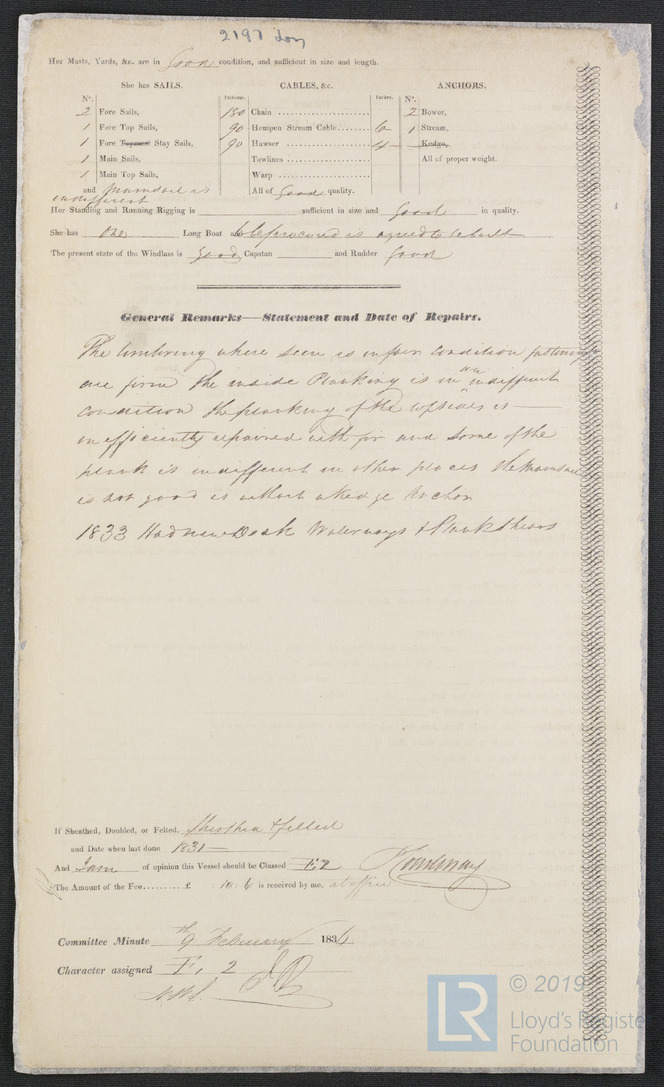 2197 Lon
Her Masts, Yards, &c. are in Good condition, and sufficient in size and length.
She has SAILS. CABLES, &c. ANCHORS.
N°. Fathoms. Inches. N°.
2 Fore Sails, 150 Chain 2 Bower,
1 Fore Top Sails, 90 Hempen Stream Cable 6 1 Stream,
1 Fore Topmast Stay Sails, 90 Hawser 4 Kedge,
1 Main Sails, Towlines All of proper weight.
1 Main Top Sails, Warp
and Mainsail is All of Good quality.
indifferent
Her Standing and Running Rigging is sufficient in size and Good in quality.
She has One Long Boat and to be procured is agreed to be built
The present state of the Windlass is Good Capstan and Rudder Good
General Remarks—Statement and Date of Repairs.
The timbering where seen is in fair condition fastenings
are firm The inside Planking is in an indifferent
condition the planking of the topsides is —
inefficiently repaired with fir and some of the
plank is indifferent in other places the mainsail
is not good is without a Kedge Anchor
1833 Had new Deck Waterways & Planksheers
If Sheathed, Doubled, or Felted, Sheathed & felted
and Date when last done 1831
And I am of opinion this Vessel should be Classed E2 Courtenay
The Amount of the Fee £ 10. 6 is received by me, at office
Committee Minute 9th February 1836
Character assigned E, 2
© 2019
LR Lloyd's Register
Foundation